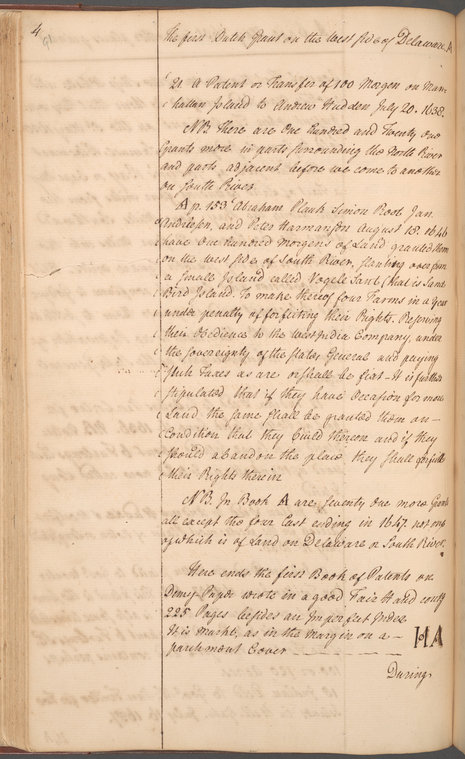 4
The first Dutch Grant on the West side of Delaware. A
21 A Patent or Transfer of 100 Morgen on Man-
hattan Island to Andrew Hudden July 20. 1638.
NB There are One Hundred and Twenty One
Grants more in parts surrounding the North River
and parts adjacent before we come to another
on South River
A p. 153 Abraham Plank Simon Root Jan
Andriesen, and Peter Harmanson August 15. 1646
have One Hundred Morgens of Land granted them
on the West side of South River, slanting over from
a Small Island called Vogele Sant (that is Sand
Bird Island. To make thereof four Farms in a year
under penalty of forfeiting their Rights. Reserving
their Obedience to the West India Company, under
the sovereignty of the States General and paying
such Taxes as are or shall be just - It is further
stipulated that if they have Occasion for more
Land the same shall be granted them on -
Condition that they build thereon and if they
should abandon the place they shall forfeit
their Rights therein
NB. In Book A are seventy One more Grants
all except the four Last ending in 1647. not one
of which is of Land on Delaware or South River.
Here ends the first Book of Patents on
Demy Paper wrote in a good Fair Hand conty
225 Pages besides an Imperfect Index
It is Markt, as in the Margin on a - HA
parchment Cover
During